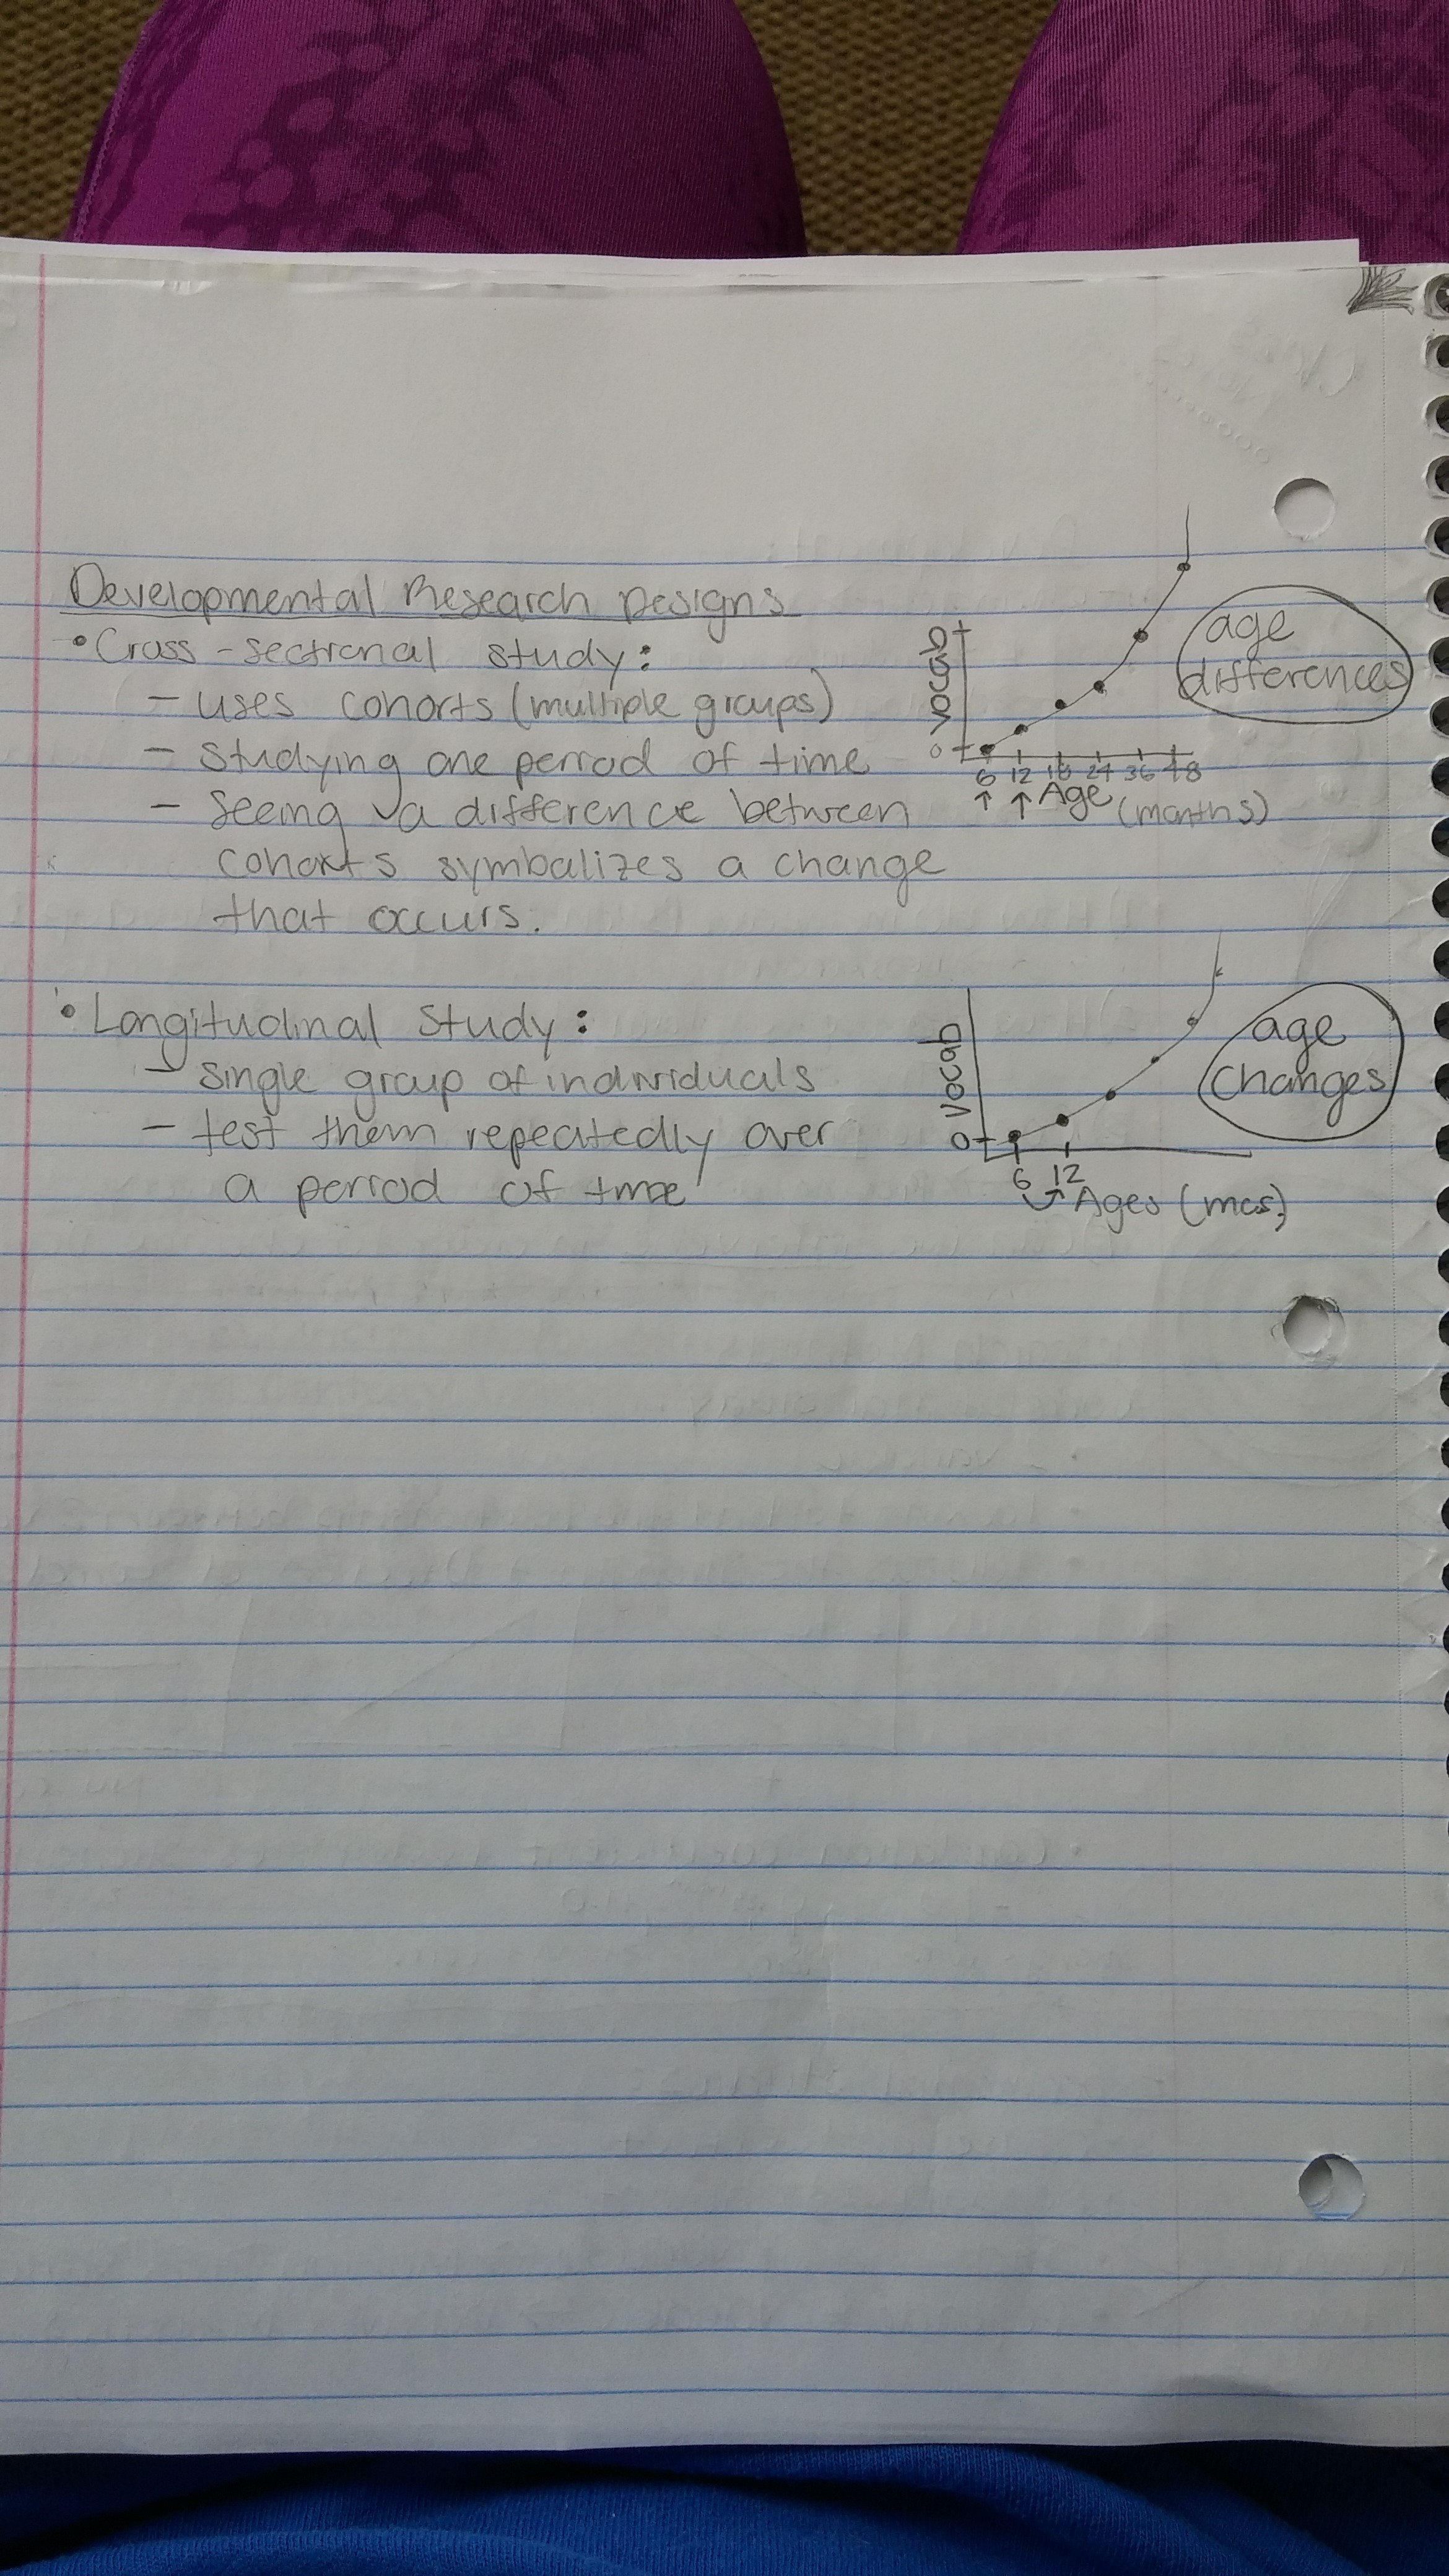 Developmental Research Designs
• Cross-sectional study:
- uses cohorts (multiple groups)
- studying one period of time
- Seeing a difference between
cohorts symbalizes a change
that occurs.
vocab
0
6 12 18 24 36 48
↑ ↑ Age (months)
age
differences
• Longitudinal Study:
- single group of individuals
- test them repeatedly over
a period of time
Vocab
0
6 12
Ages (mos)
age
Changes